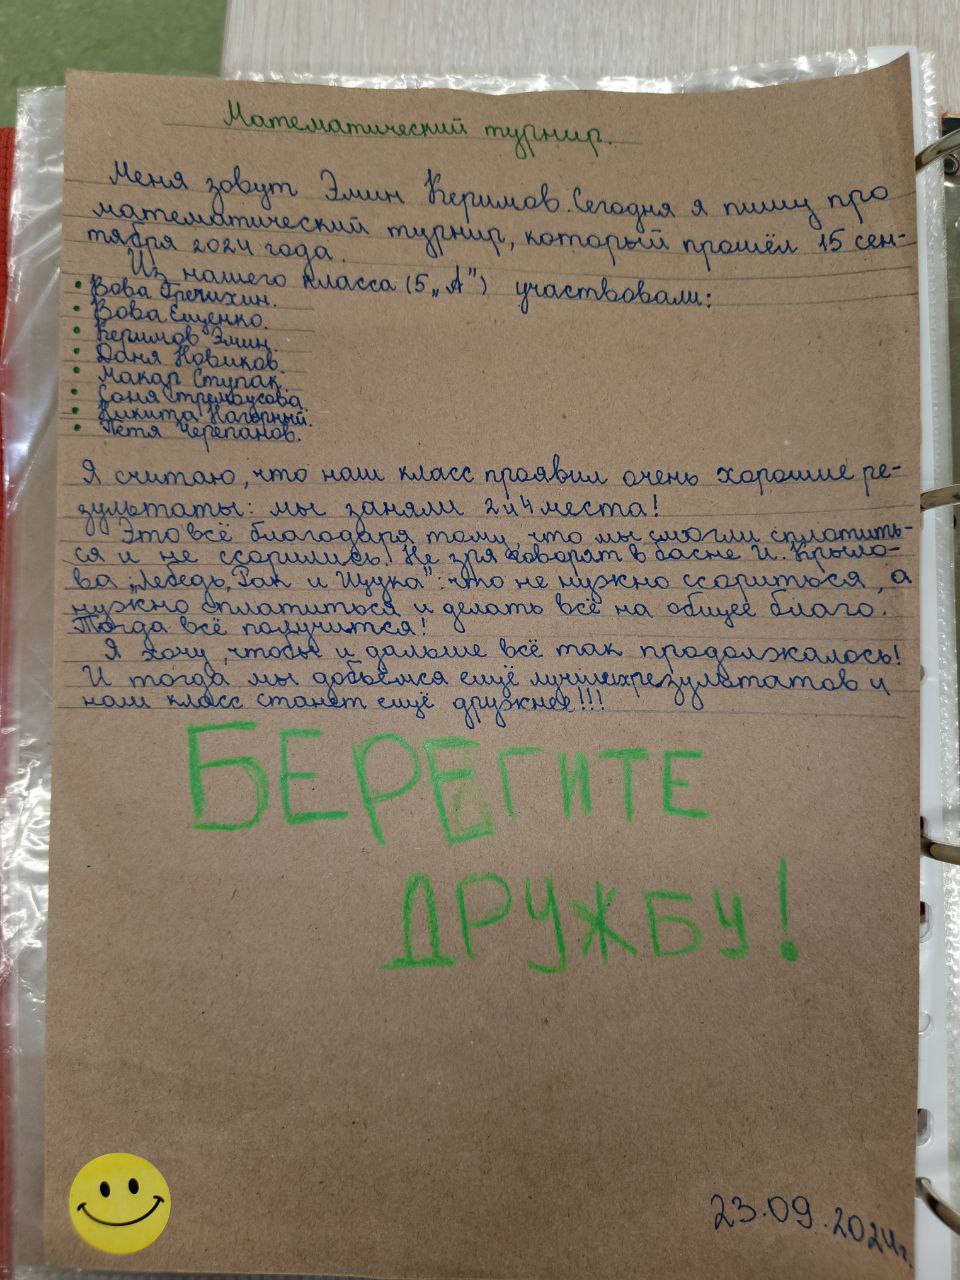 Математический турнир.
Меня зовут Эмин Керимов. Сегодня я пишу про
математический турнир, который прошёл 15 сен-
тября 2024 года.
Из нашего класса (5 „А") участвовали:
• Вова Гречихин.
• Вова Ещенко.
• Керимов Эмин.
• Даня Новиков.
• Макар Ступак.
• Соня Стрембусова
• Никита Нагорный.
• Петя Черепанов.
Я считаю, что наш класс проявил очень хорошие ре-
зультаты: мы заняли 2 и 4 места!
Это всё благодаря тому, что мы смогли сплотить-
ся и не ссорились! Не зря говорят в басне И. Крыло-
ва „Лебедь, Рак и Щука": что не нужно ссориться, а
нужно сплотиться и делать всё на общее благо.
Тогда всё получится!
Я хочу, чтобы и дальше всё так продолжалось!
И тогда мы добьёмся ещё лучших результатов и
наш класс станет ещё дружнее!!!
БЕРЕГИТЕ
ДРУЖБУ!
23.09.2024г.